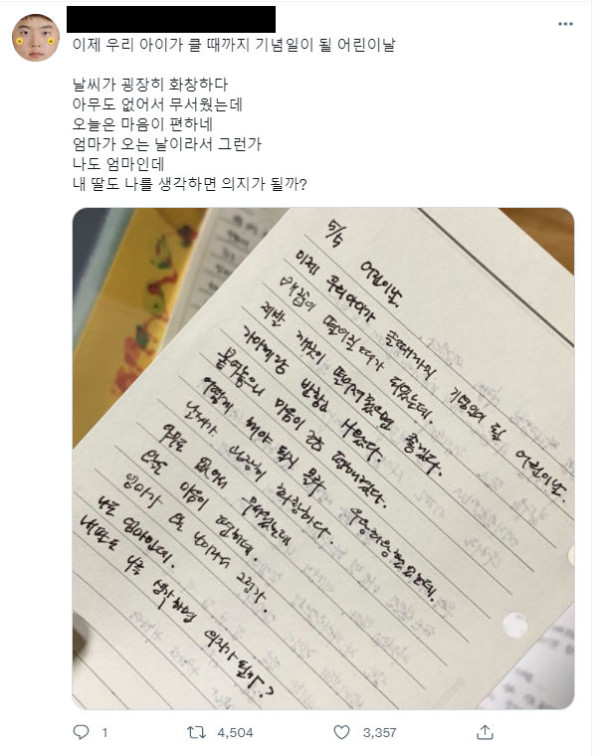 이제 우리 아이가 클 때까지 기념일이 될 어린이날
날씨가 굉장히 화창하다
아무도 없어서 무서웠는데
오늘은 마음이 편하네
엄마가 오는 날이라서 그런가
나도 엄마인데
내 딸도 나를 생각하면 의지가 될까?
5/5 어린이날.
이제 우리아이가 클때까지 기념일이 될 어린이날.
배꼽이 떨어질때가 되었는데.
제발 개끗이 떨어져줬으면 좋겠다.
마음이
어떻게 해야 될지 몰라 우왕좌왕 했는데.
날씨가 굉장히 화창하다.
아무도 없어서 무서웠는데
오늘은 마음이 편하네.
엄마가 오는 날이라서 그런가.
나도 엄마인데.
내딸도 나를 생각하면 의지가 될까?
1
4,504
3,357